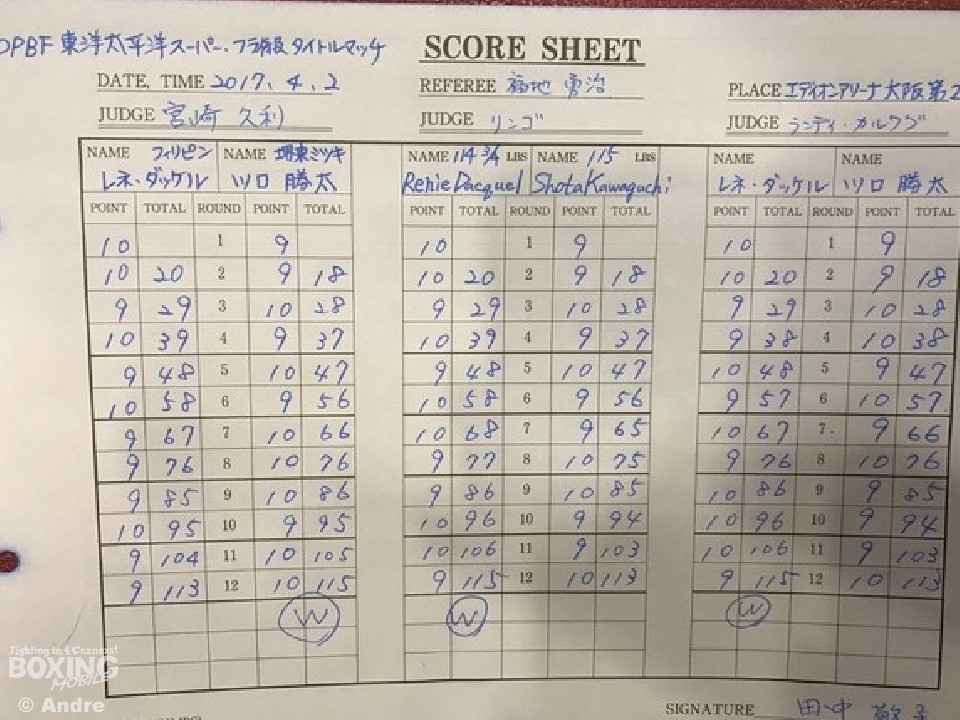 OPBF 東洋太平洋スーパー・フライ級 タイトルマッチ
SCORE SHEET
DATE, TIME 2017. 4. 2
REFEREE 福地 勇治
PLACE エディオンアリーナ大阪第2
JUDGE 宮崎 久利
JUDGE リンゴ
JUDGE ランディ・カルワグ
NAME フィリピン NAME 堺東ミツキ NAME 114 3/4 LBS NAME 115 LBS NAME NAME
レネ・ダッケル 川口 勝太 Renie Dacquel Shota Kawaguchi レネ・ダッケル 川口 勝太
POINT TOTAL ROUND POINT TOTAL POINT TOTAL ROUND POINT TOTAL POINT TOTAL ROUND POINT TOTAL
10 1 9 10 1 9 10 1 9
10 20 2 9 18 10 20 2 9 18 10 20 2 9 18
9 29 3 10 28 9 29 3 10 28 9 29 3 10 28
10 39 4 9 37 10 39 4 9 37 9 38 4 10 38
9 48 5 10 47 9 48 5 10 47 10 48 5 9 47
10 58 6 9 56 10 58 6 9 56 9 57 6 10 57
9 67 7 10 66 10 68 7 9 65 10 67 7 9 66
9 76 8 10 76 9 77 8 10 75 9 76 8 10 76
9 85 9 10 86 9 86 9 10 85 10 86 9 9 85
10 95 10 9 95 10 96 10 9 94 10 96 10 9 94
9 104 11 10 105 10 106 11 9 103 10 106 11 9 103
9 113 12 10 115 9 115 12 10 113 9 115 12 10 113
W W W
Fighting in 4 Corners!
BOXING
MOBILE
© Andre
SIGNATURE 田中